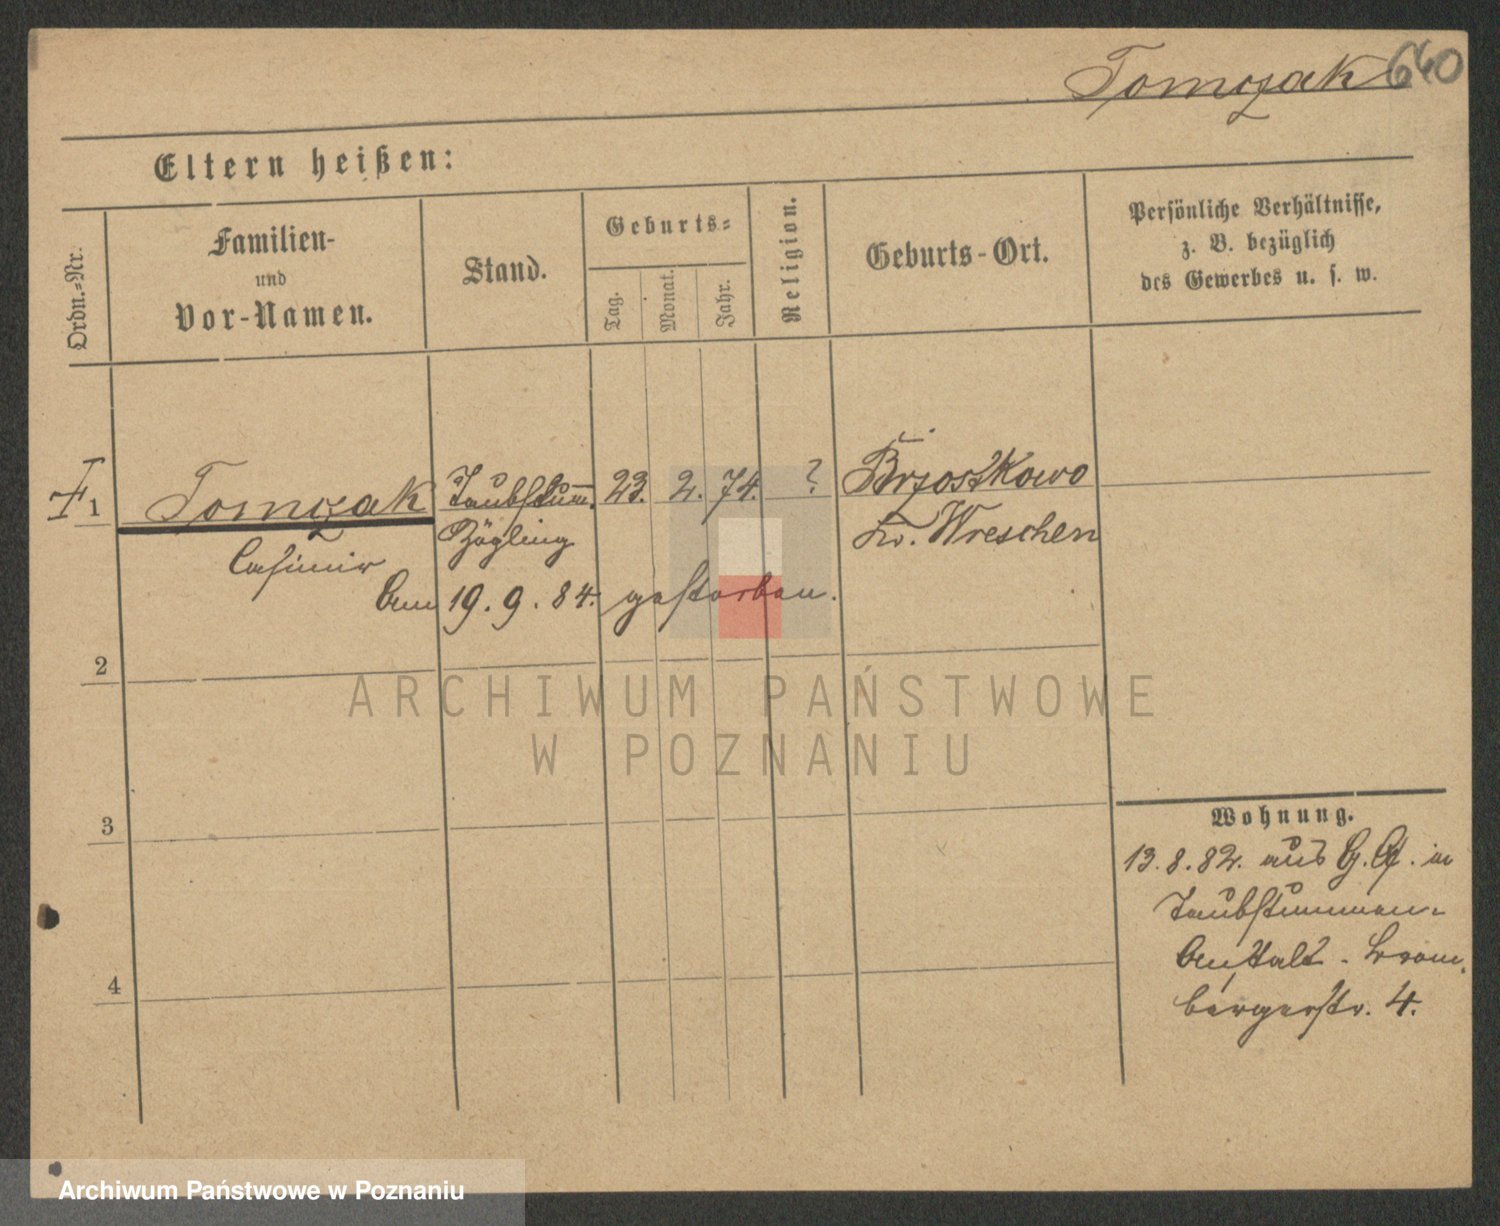 Tomczak 640
Eltern heißen:
Ordn.=Nr.
Familien-
und
Vor-Namen.
Stand.
Geburts=
Tag.
Monat.
Jahr.
Religion.
Geburts-Ort.
Persönliche Verhältnisse,
z. B. bezüglich
des Gewerbes u. s. w.
1 Tomczak Taubstum. 23. 2. 74. ? Brzostkowo
Zögling Kr. Wreschen
Casimir
Am 19. 9. 84. gestorben.
2
3
4
Wohnung.
13. 8. 82. aus G. in
Taubstummen-
Anstalt - Brom-
bergerstr. 4.
ARCHIWUM PAŃSTWOWE
W POZNANIU
Archiwum Państwowe w Poznaniu